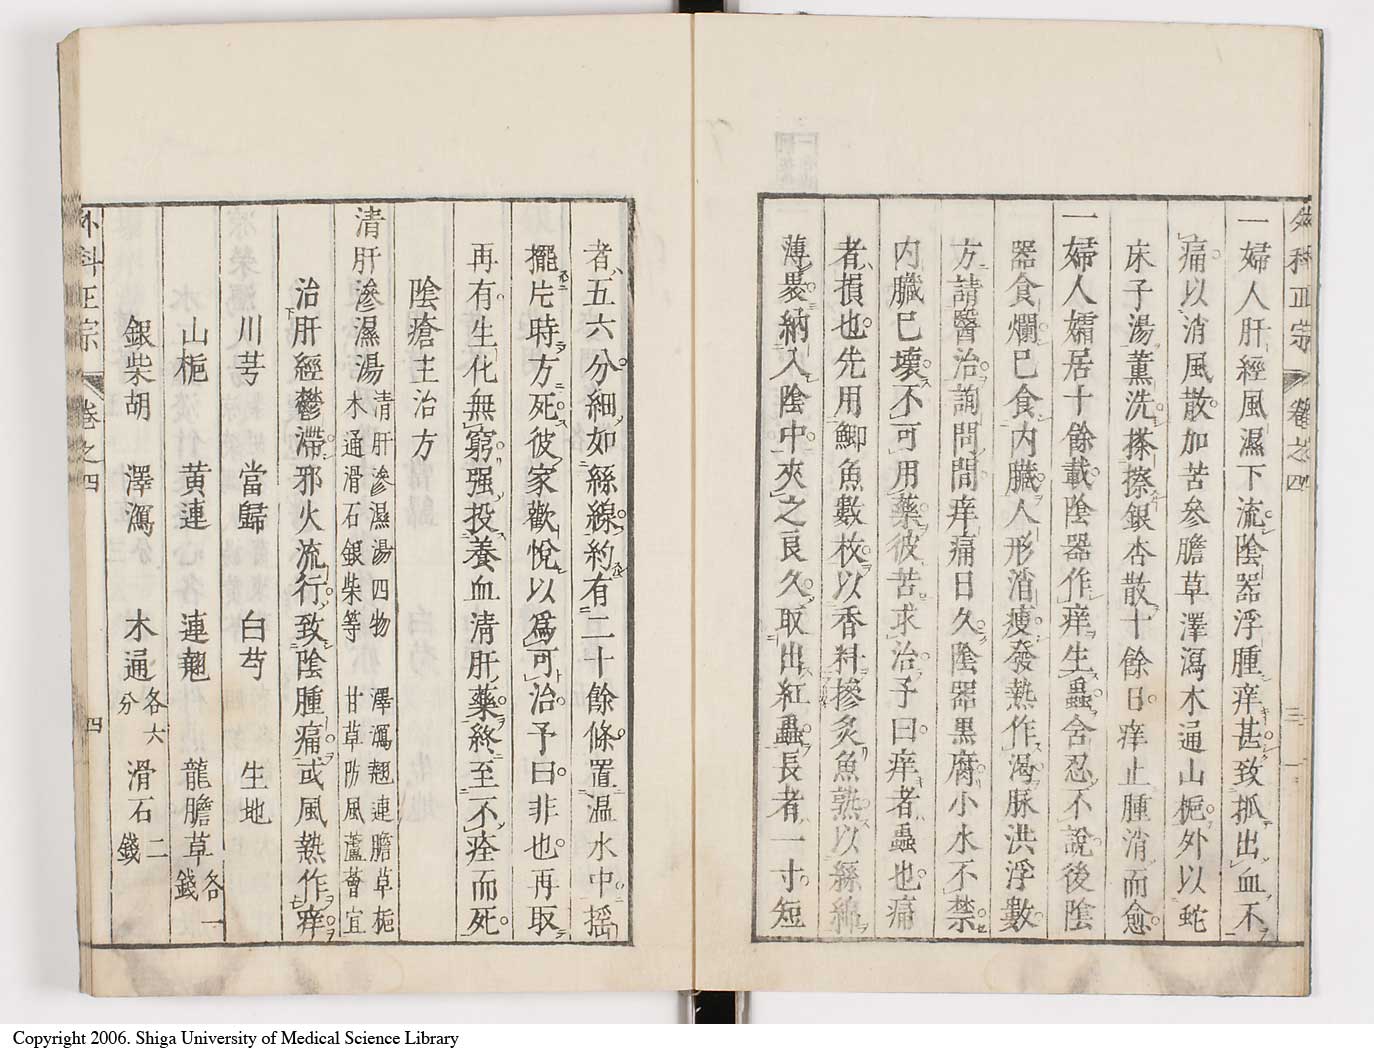 外科正宗 卷之四 三
一婦人肝經風濕下流陰器浮腫痒甚致抓出血不
痛以消風散加苦參膽草澤瀉木通山梔外以蛇
床子湯薰洗搽擦銀杏散十餘日痒止腫消而愈
一婦人孀居十餘載陰器作痒生蟲含忍不說後陰
器食爛已食內臟人形消瘦發熱作渴脉洪浮數
方請醫治詢問間痒痛日久陰器黑腐小水不禁
內臟已壞不可用藥彼苦求治予曰痒者蟲也痛
者損也先用鯽魚數枚以香料摻炙魚熟以絲綿
薄褁納入陰中夾之良久取出紅蟲長者一寸短
者五六分細如絲線約有二十餘條置温水中摇
擺片時方死彼家歡悅以爲可治予曰非也再取
再有生化無窮强投養血清肝藥終至不痊而死
陰瘡主治方
清肝滲濕湯 清肝滲濕湯四物 澤瀉翹連膽草梔
木通滑石銀柴等 甘草防風蘆薈宜
治肝經鬱滯邪火流行致陰腫痛或風熱作痒
川芎 當歸 白芍 生地
山梔 黄連 連翹 龍膽草各一錢
銀柴胡 澤瀉 木通各六分 滑石二錢
外科正宗 卷之四 四
Copyright 2006. Shiga University of Medical Science Library